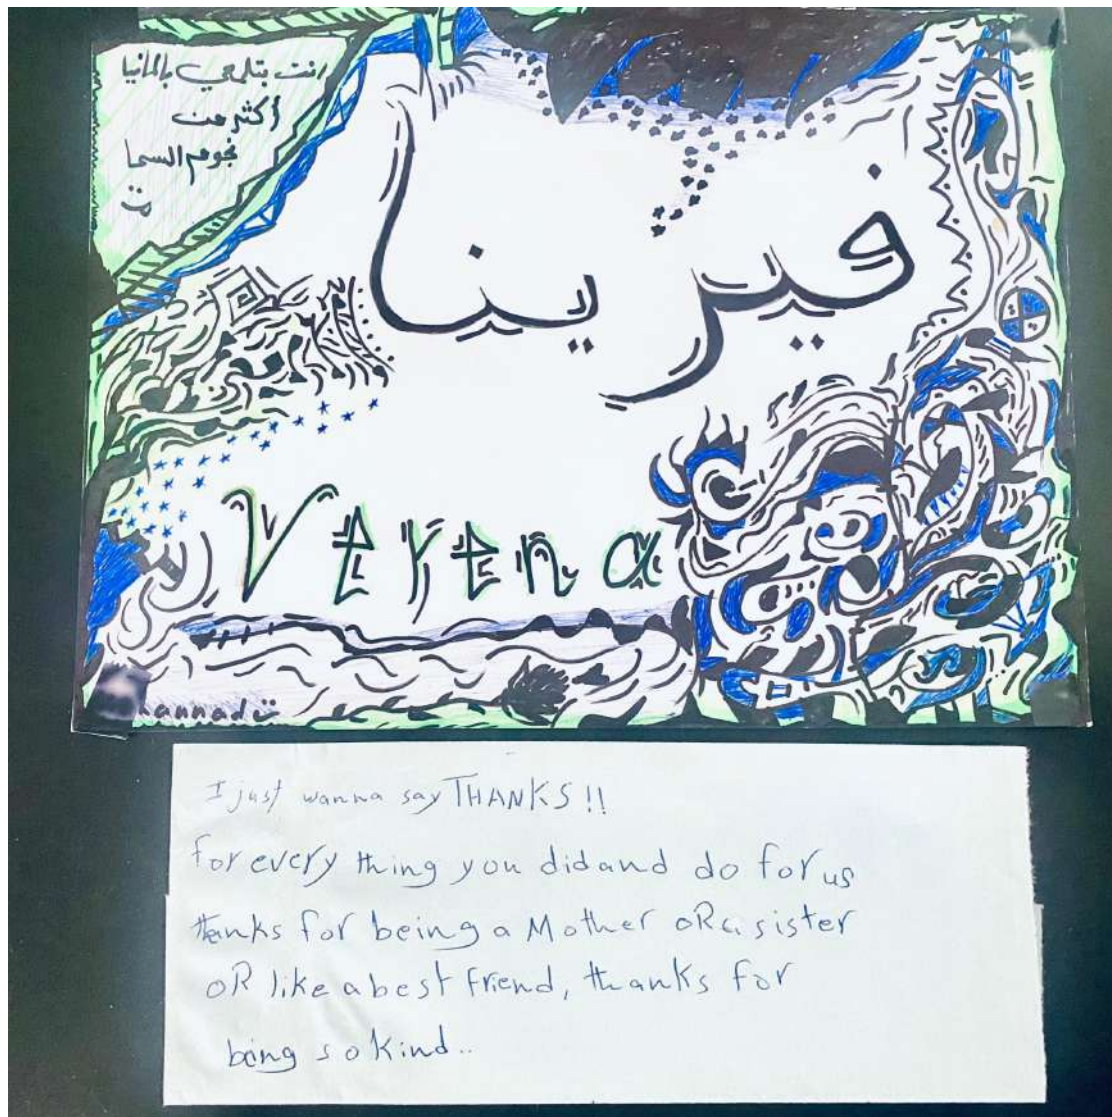 انت بتلمعي بالمانيا
أكثر من
نجوم السما
فيرينا
Verena
I just wanna say THANKS!!
for every thing you did and do for us
thanks for being a Mother oR a sister
oR like a best friend, thanks for
being so kind..